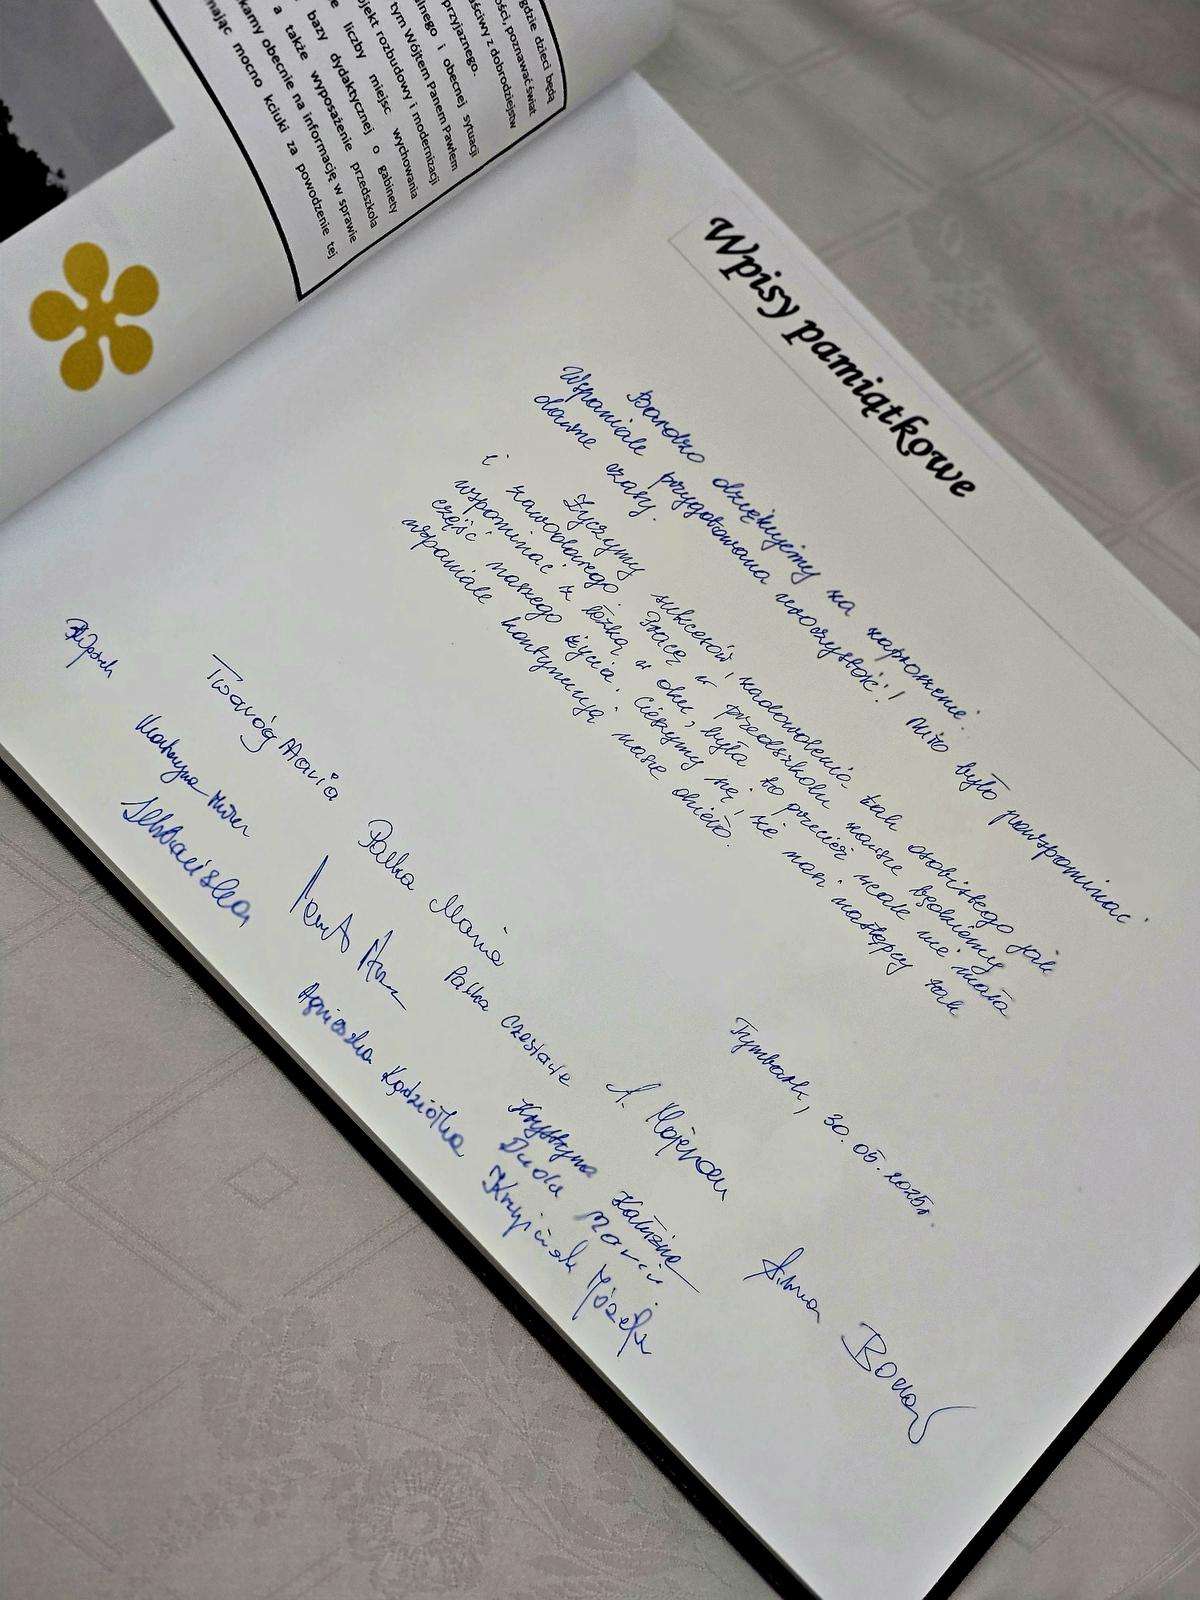 gdzie dzieci będą
ości, poznawać świat
aściwy z dobrodziejstw
przyjaznego.
lnego i obecnej sytuacji
tym Wójtem Panem Pawłem
jekt rozbudowy i modernizacji
e liczby miejsc wychowania
bazy dydaktycznej o gabinety
a także wyposażenie przedszkola
kamy obecnie na informację w sprawie
mając mocno kciuki za powodzenie tej
Wpisy pamiątkowe
Bardzo dziękujemy za zaproszenie.
Wspaniale przygotowana uroczystość! Miło było powspominać
dawne czasy.
Życzymy sukcesów, zadowolenia tak osobistego jak
i zawodowego. Pracę w przedszkolu zawsze będziemy
wspominać z łezką w oku, była to przecież wcale nie mała
część naszego życia. Cieszymy się, że nasi następcy tak
wspaniale kontynuują nasze dzieło.
Tymbark, 30.05.2025r.
Twaróg Maria
Palka Maria
Palka Czesława
Krystyna Kaliszna
Duda Maria
Krzyściak Józefa
Agnieszka Kądziołka
Anna